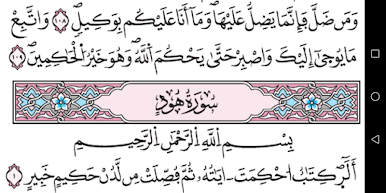 وَمَن ضَلَّ فَإِنَّمَا يَضِلُّ عَلَيْهَا وَمَآ أَنَا۠ عَلَيْكُم بِوَكِيلٍ ١٠٨ وَاتَّبِعْ
مَا يُوحَىٰٓ إِلَيْكَ وَاصْبِرْ حَتَّىٰ يَحْكُمَ اللَّهُ وَهُوَ خَيْرُ الْحَاكِمِينَ ١٠٩
سُورَةُ هُودٍ
بِسْمِ اللَّهِ الرَّحْمَٰنِ الرَّحِيمِ
أَلَٓرۚ كِتَٰبٌ احْكِمَتَ ايَٰتُهُۥ ثُمَّ فُصِّلَتْ مِن لَّدُنْ حَكِيمٍ خَبِيرٍ ١